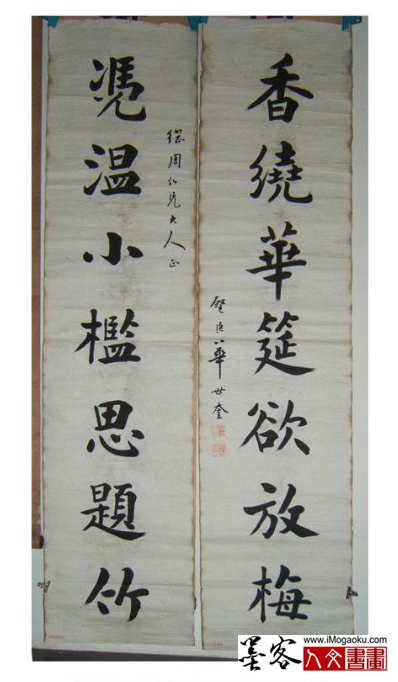 香繞華筵欲放梅
璧臣華世奎
憑温小檻思題竹
繼周仁兄大人正
墨客
www.iMogaoku.com
人文書畫